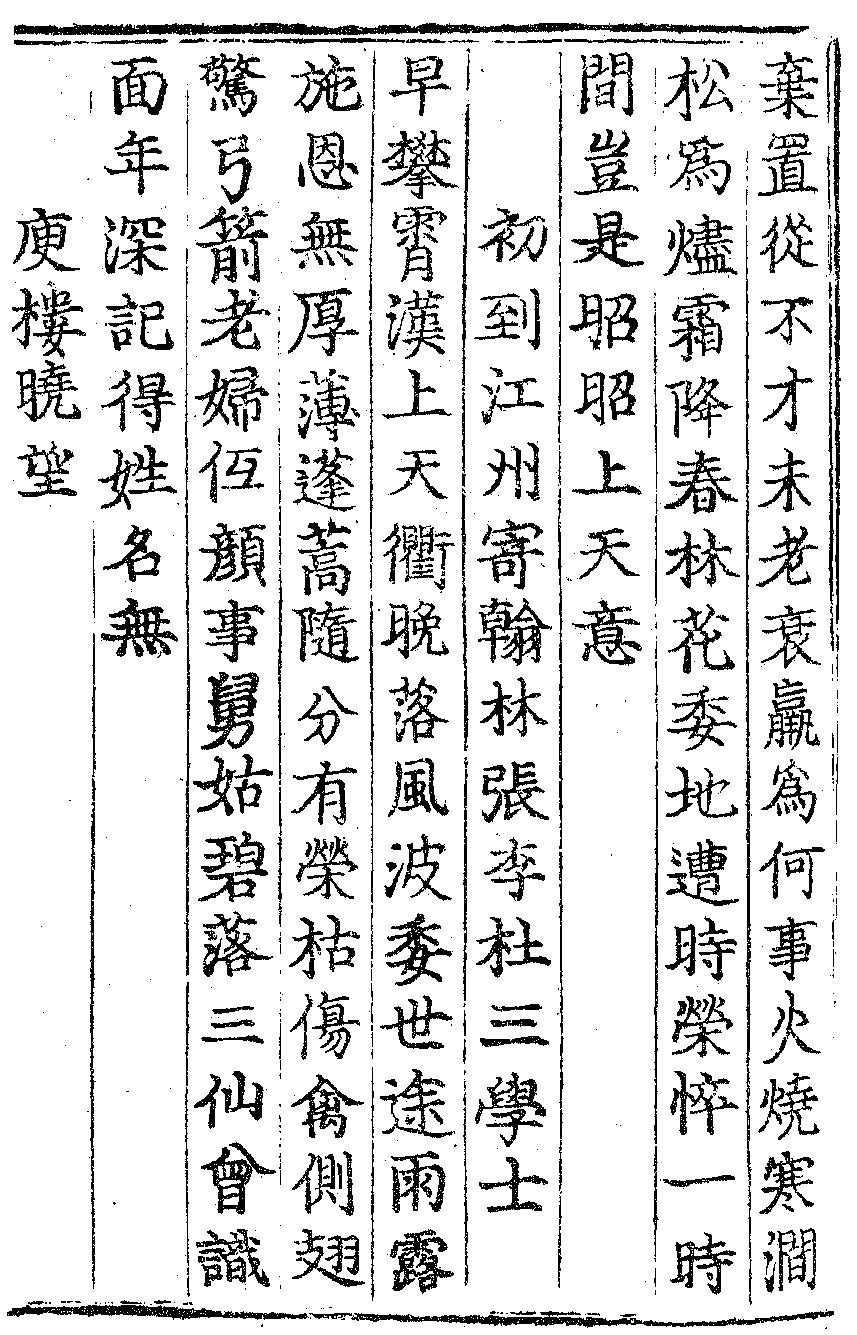 棄置從不才未老衰羸為何事火燒寒澗
松為燼霜降春林花委地遭時榮悴一時
間豈是昭昭上天意
初到江州寄翰林張李杜三學士
早攀霄漢上天衢晚落風波委世途雨露
施恩無厚薄蓬蒿隨分有榮枯傷禽側翅
驚弓箭老婦低顏事舅姑碧落三仙曾識
面年深記得姓名無
庾樓曉望